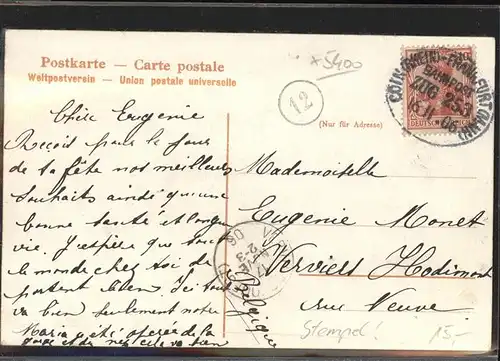 Postkarte — Carte postale
Weltpostverein — Union postale universelle
x5400
12
(Nur für Adresse)
CÖLN (RHEIN)-FRANKFURT (MAIN)
BAHNPOST
ZUG
DEUTSCHES REICH
Chère Eugenie
Reçois pour le jour
de ta fête nos meilleurs
souhaits ainsi qu'une
bonne santé et longue
vie. J'espère que tout
le monde chez toi se
portent bien. Ici tout
va bien seulement notre
Maria a été opérée de la
gorge et du nez cela va bien
Mademoiselle
Eugénie Monet
Verviers Hodimont
rue Neuve
Belgique
Stempel!
15,-